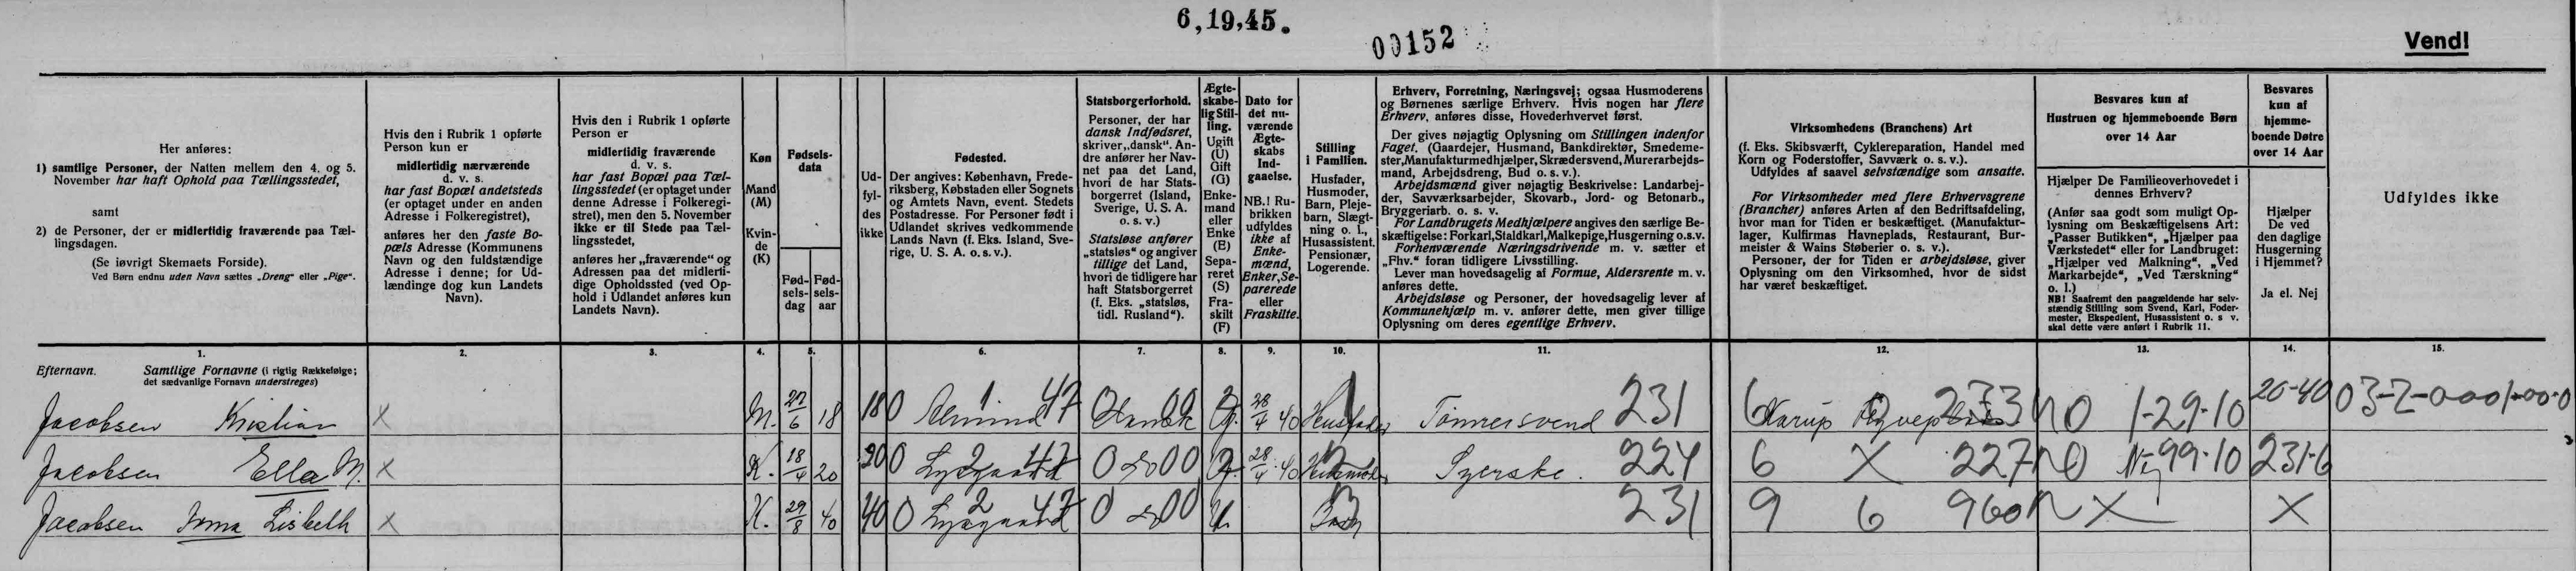 6,19,45.
00152
Vend!
Her anføres:
1) samtlige Personer, der Natten mellem den 4. og 5.
November har haft Ophold paa Tællingsstedet,
samt
2) de Personer, der er midlertidig fraværende paa Tæl-
lingsdagen.
(Se iøvrigt Skemaets Forside).
Ved Børn endnu uden Navn sættes „Dreng“ eller „Pige“.
Hvis den i Rubrik 1 opførte
Person kun er
midlertidig nærværende
d. v. s.
har fast Bopæl andetsteds
(er optaget under en anden
Adresse i Folkeregistret),
anføres her den faste Bo-
pæls Adresse (Kommunens
Navn og den fuldstændige
Adresse i denne; for Ud-
lændinge dog kun Landets
Navn).
Hvis den i Rubrik 1 opførte
Person er
midlertidig fraværende
d. v. s.
har fast Bopæl paa Tæl-
lingsstedet (er optaget under
denne Adresse i Folkeregi-
stret), men den 5. November
ikke er til Stede paa Tæl-
lingsstedet,
anføres her „fraværende“ og
Adressen paa det midlerti-
dige Opholdssted (ved Op-
hold i Udlandet anføres kun
Landets Navn).
Køn
Mand
(M)
Kvin-
de
(K)
Fødsels-
data
Fød-
sels-
dag
Fød-
sels-
aar
Ud-
fyl-
des
ikke
Fødested.
Der angives: København, Frede-
riksberg, Købstaden eller Sognets
og Amtets Navn, event. Stedets
Postadresse. For Personer født i
Udlandet skrives vedkommende
Lands Navn (f. Eks. Island, Sve-
rige, U. S. A. o. s. v.).
Statsborgerforhold.
Personer, der har
dansk Indfødsret,
skriver „dansk“. An-
dre anfører her Nav-
net paa det Land,
hvori de har Stats-
borgerret (Island,
Sverige, U. S. A.
o. s. v.)
Statsløse anfører
„statsløs“ og angiver
tillige det Land,
hvori de tidligere har
haft Statsborgerret
(f. Eks. „statsløs,
tidl. Rusland“).
Ægte-
skabe-
lig Stil-
ling.
Ugift
(U)
Gift
(G)
Enke-
mand
eller
Enke
(E)
Sepa-
reret
(S)
Fra-
skilt
(F)
Dato for
det nu-
værende
Ægte-
skabs
Ind-
gaaelse.
NB.! Ru-
brikken
udfyldes
ikke af
Enke-
mænd,
Enker, Se-
parerede
eller
Fraskilte.
Stilling
i Familien.
Husfader,
Husmoder,
Barn, Pleje-
barn, Slægt-
ning o. l.,
Husassistent,
Pensionær,
Logerende.
Erhverv, Forretning, Næringsvej; ogsaa Husmoderens
og Børnenes særlige Erhverv. Hvis nogen har flere
Erhverv, anføres disse, Hovederhvervet først.
Der gives nøjagtig Oplysning om Stillingen indenfor
Faget. (Gaardejer, Husmand, Bankdirektør, Smedeme-
ster, Manufakturmedhjælper, Skrædersvend, Murerarbejds-
mand, Arbejdsdreng, Bud o. s. v.).
Arbejdsmænd giver nøjagtig Beskrivelse: Landarbej-
der, Savværksarbejder, Skovarb., Jord- og Betonarb.,
Bryggeriarb. o. s. v.
For Landbrugets Medhjælpere angives den særlige Be-
skæftigelse: Forkarl, Staldkarl, Malkepige, Husgerning o.s.v.
Forhenværende Næringsdrivende m. v. sætter et
„Fhv.“ foran tidligere Livsstilling.
Lever man hovedsagelig af Formue, Aldersrente m. v.
anføres dette.
Arbejdsløse og Personer, der hovedsagelig lever af
Kommunehjælp m. v. anfører dette, men giver tillige
Oplysning om deres egentlige Erhverv.
Virksomhedens (Branchens) Art
(f. Eks. Skibsværft, Cyklereparation, Handel med
Korn og Foderstoffer, Savværk o. s. v.).
Udfyldes af saavel selvstændige som ansatte.
For Virksomheder med flere Erhvervsgrene
(Brancher) anføres Arten af den Bedriftsafdeling,
hvor man for Tiden er beskæftiget. (Manufaktur-
lager, Kulfirmas Havneplads, Restaurant, Bur-
meister & Wains Støberier o. s. v.).
Personer, der for Tiden er arbejdsløse, giver
Oplysning om den Virksomhed, hvor de sidst
har været beskæftiget.
Besvares kun af
Hustruen og hjemmeboende Børn
over 14 Aar
Hjælper De Familieoverhovedet i
dennes Erhverv?
(Anfør saa godt som muligt Op-
lysning om Beskæftigelsens Art:
„Passer Butikken“, „Hjælper paa
Værkstedet“ eller for Landbruget:
„Hjælper ved Malkning“, „Ved
Markarbejde“, „Ved Tærskning“
o. l.)
NB! Saafremt den paagældende har selv-
stændig Stilling som Svend, Karl, Foder-
mester, Ekspedient, Husassistent o. s v.
skal dette være anført i Rubrik 11.
Besvares
kun af
hjemme-
boende Døtre
over 14 Aar
Hjælper
De ved
den daglige
Husgerning
i Hjemmet?
Ja el. Nej
Udfyldes ikke
1. 2. 3. 4. 5. 6. 7. 8. 9. 10. 11. 12. 13. 14. 15.
Efternavn. Samtlige Fornavne (i rigtig Rækkefølge;
det sædvanlige Fornavn understreges)
Jacobsen Kristian X M. 27/6 18 180 Almind 1 47 Dansk 00 G. 28/4 40 Husfader 1 Tømrersvend 231 6 Karup 233 NO 1-29-10 26-40 03-2-0001-00-0
Jacobsen Ella M. X K. 18/4 20 200 Lysgaard 2 47 0 do 00 G. 28/4 40 Husmoder 2 Syerske. 224 6 X 227 NO Nej 99-10 231-6
Jacobsen Irma Lisbeth X K. 29/8 40 400 Lysgaard 2 47 0 do 00 U. Barn 3 231 9 6 960 N X X